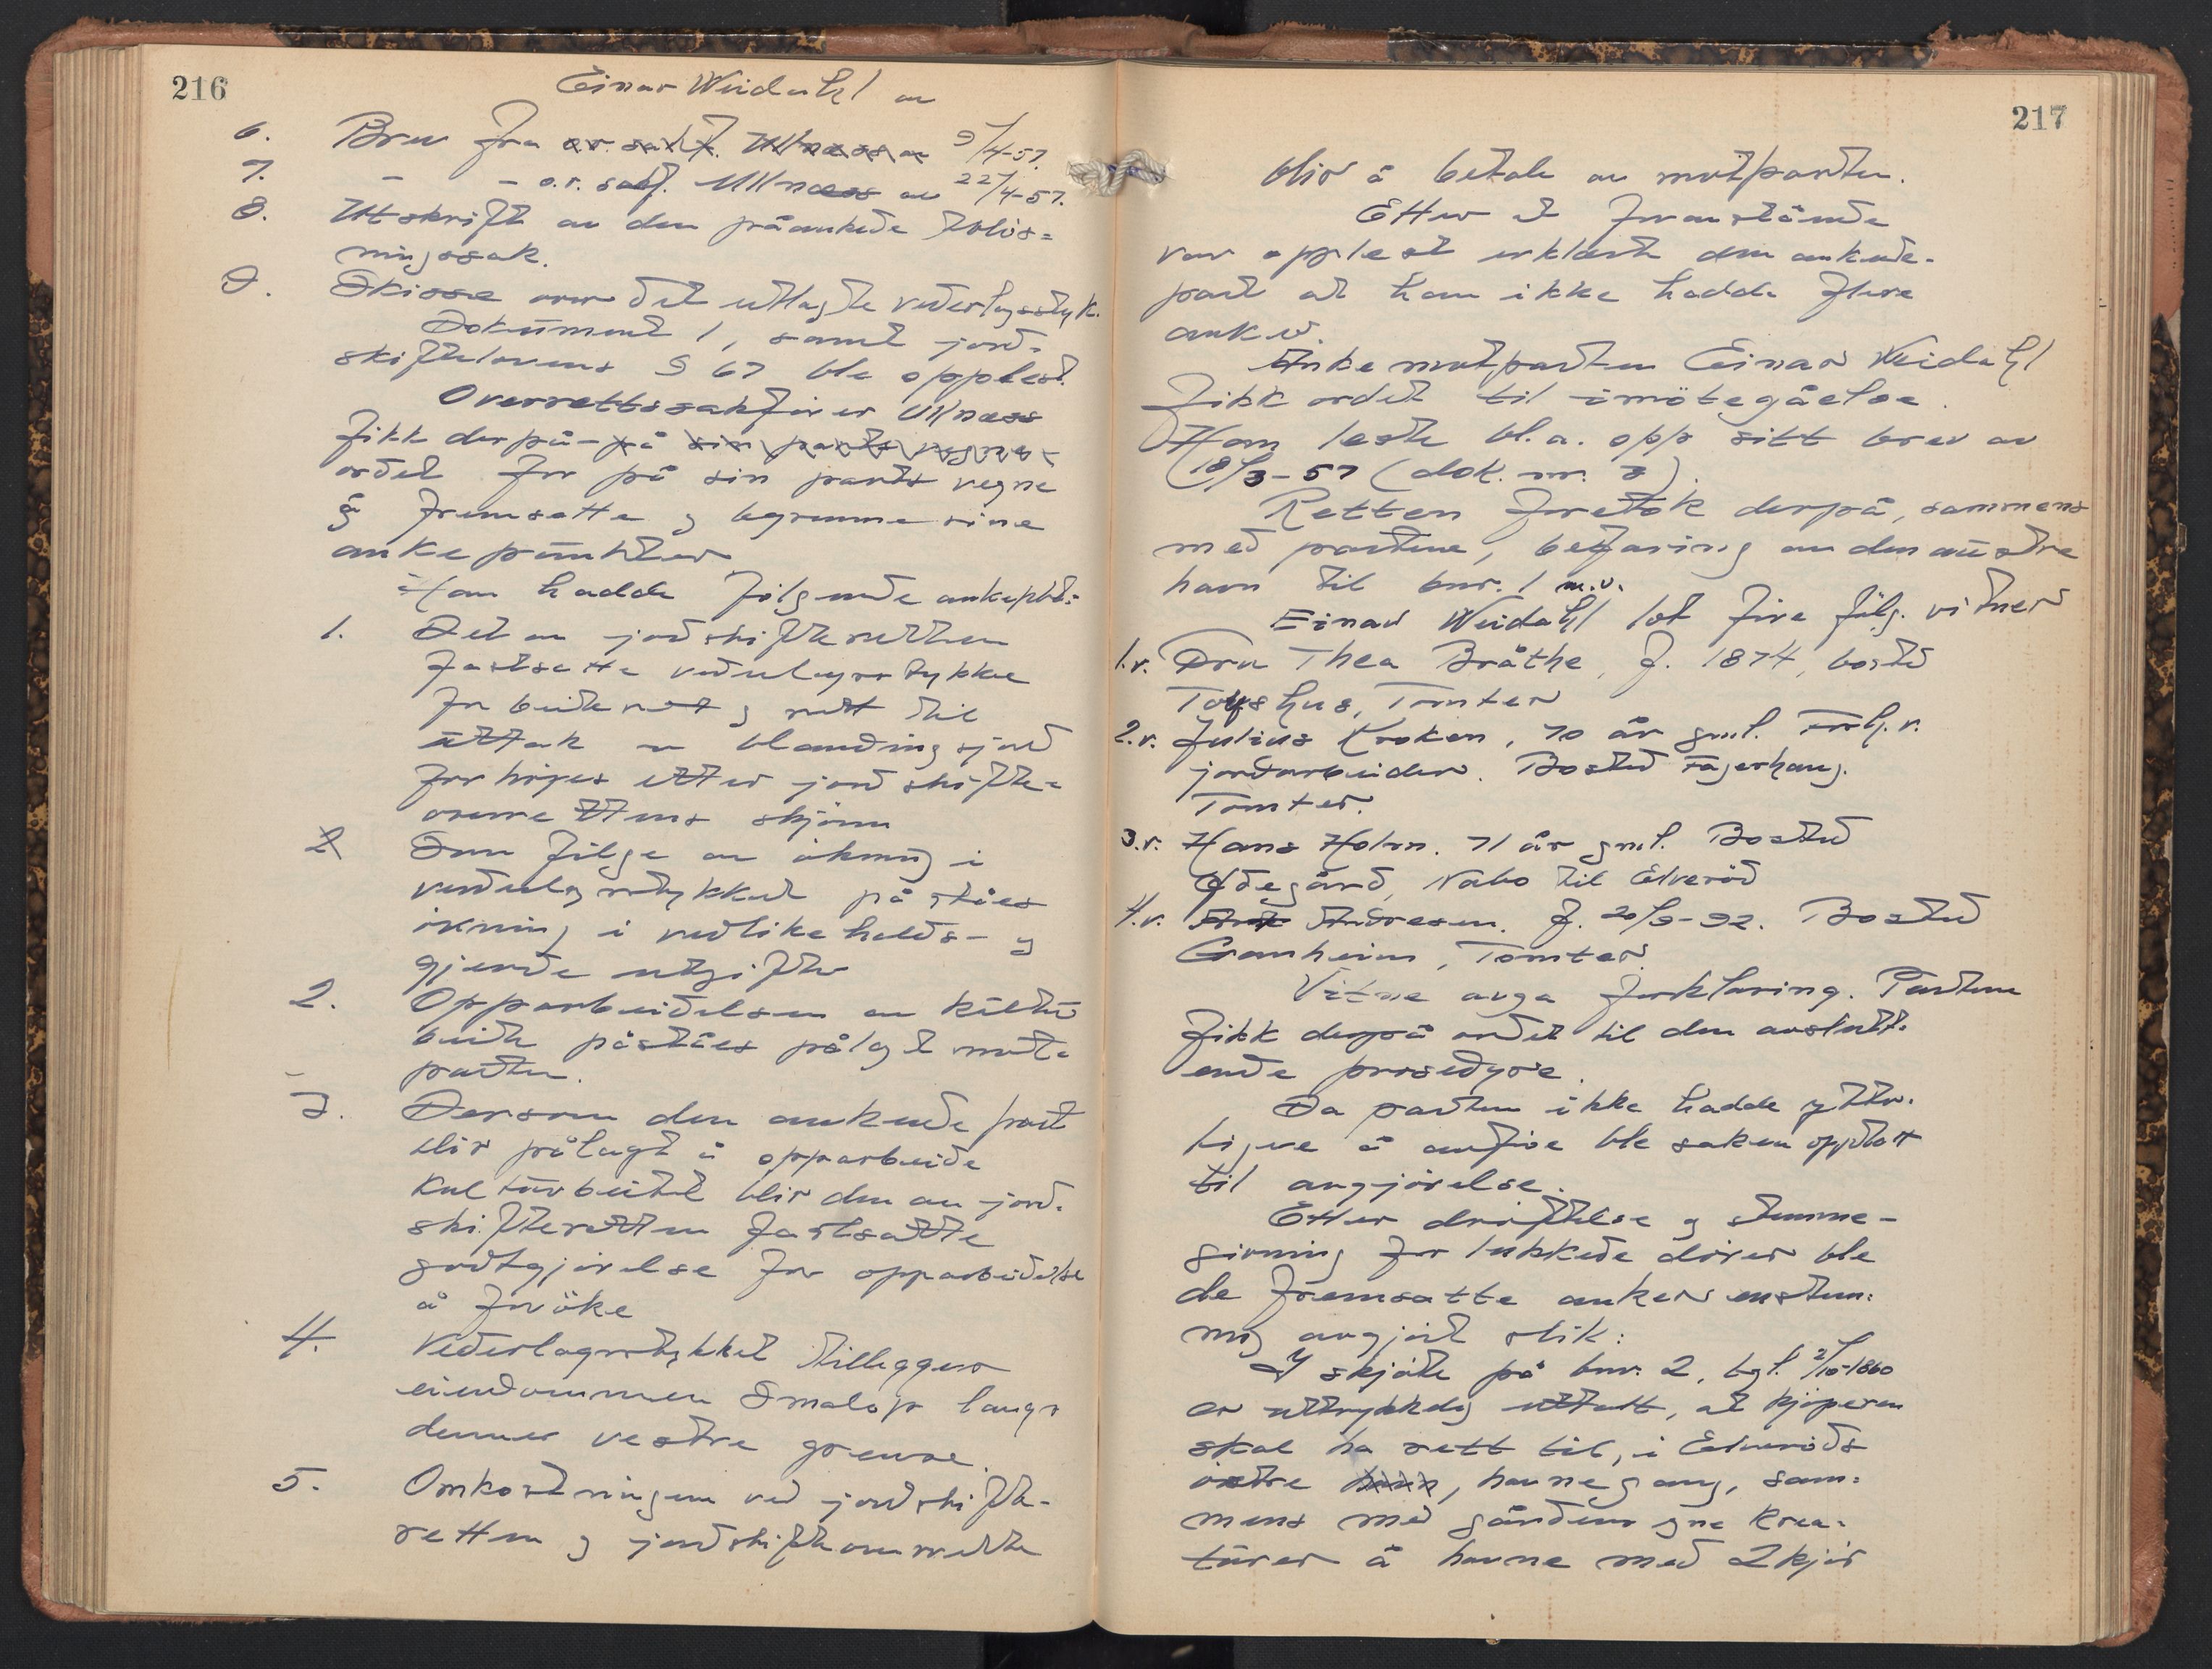 216
Einar Weidahl av
6. Brev fra o.r. sakf. Ullnæss av 9/4-57.
7. - - o.r. sakf. Ullnæss av 22/4-57.
8. Utskrift av den påankede tvlös=
ningssak.
9. Skisse over det utlagte vederlagsstyk.
Dokument 1, samt jord-
skiftelovens § 67 ble opplest.
Overrettssakfører Ullnæss
fikk derpå - på sin parts vegne -
ordet for på sin parts vegne
å fremsette og begrunne sine
ankepunkter
Han hadde følgende ankepkt.:
1. Det av jordskifteretten
fastsette vederlagsstykke
for beiterett og rett til
uttak av blandingsjord
forhöyes etter jordskifte=
overrettens skjönn
2 Som fölge av ökning i
vederlagsstykket påståes
ökning i vedlikeholds- og
gjerde utgifter
2. Opparbeidelsen av kultur
beite påståes pålagt mot=
parten.
3. Dersom den ankende part
blir pålagt å opparbeide
kulturbeitet blir den av jord-
skifteretten fastsatte
godtgjörelse for opparbeidelse
å foröke
4. Vederlagsstykket tillegges
eiendommen Smaløp langs
dennes vestre grense.
5. Omkostningene ved jordskifte-
retten og jordskifteoverrette
217
blir å betale av motparten.
Etter at foranstående
var opplest erklærte den ankende-
part at han ikke hadde flere
anker.
Ankemotparten Einar Weidahl
fikk ordet til imötegåelse.
Han leste bl.a. opp sitt brev av
18/3-57 (dok. nr. 3).
Retten foretok derpå, sammens
med partene, befaring av den austre
havn til bnr. 1 m.v.
Einar Weidahl lot före fölg. vitner
1.v. Fru Thea Bråthe, f. 1874, bosted
Toyshus, Tomter
2.v. Julius Kroken, 70 år gml. Forh.v.
jordarbeider. Bosted Fagerhaug.
Tomter.
3.v. Hans Holm. 71 år gml. Bosted
Ødegård, Nabo til Elveröd
4.v. Andresen. f. 20/9-92. Bosted
Granheim, Tomter.
Vitne avga forklaring. Partene
fikk derpå ordet til den avslutt-
ende prosedyre.
Da partene ikke hadde ytter-
ligere å anföre ble saken opptatt
til avgjörelse.
Etter dröftelse og stemme-
givning for lukkede dörer ble
de fremsatte anker enstem:
mig avgjort slik:
I skjöte på bnr. 2, tgl. 2/10-1860
er uttrykkelig uttalt, at kjöperen
skal ha rett til, i Elveröds
östre havn, havnegang, sam:
mens med gårdens egne krea-
türer å havne med 2 kjör